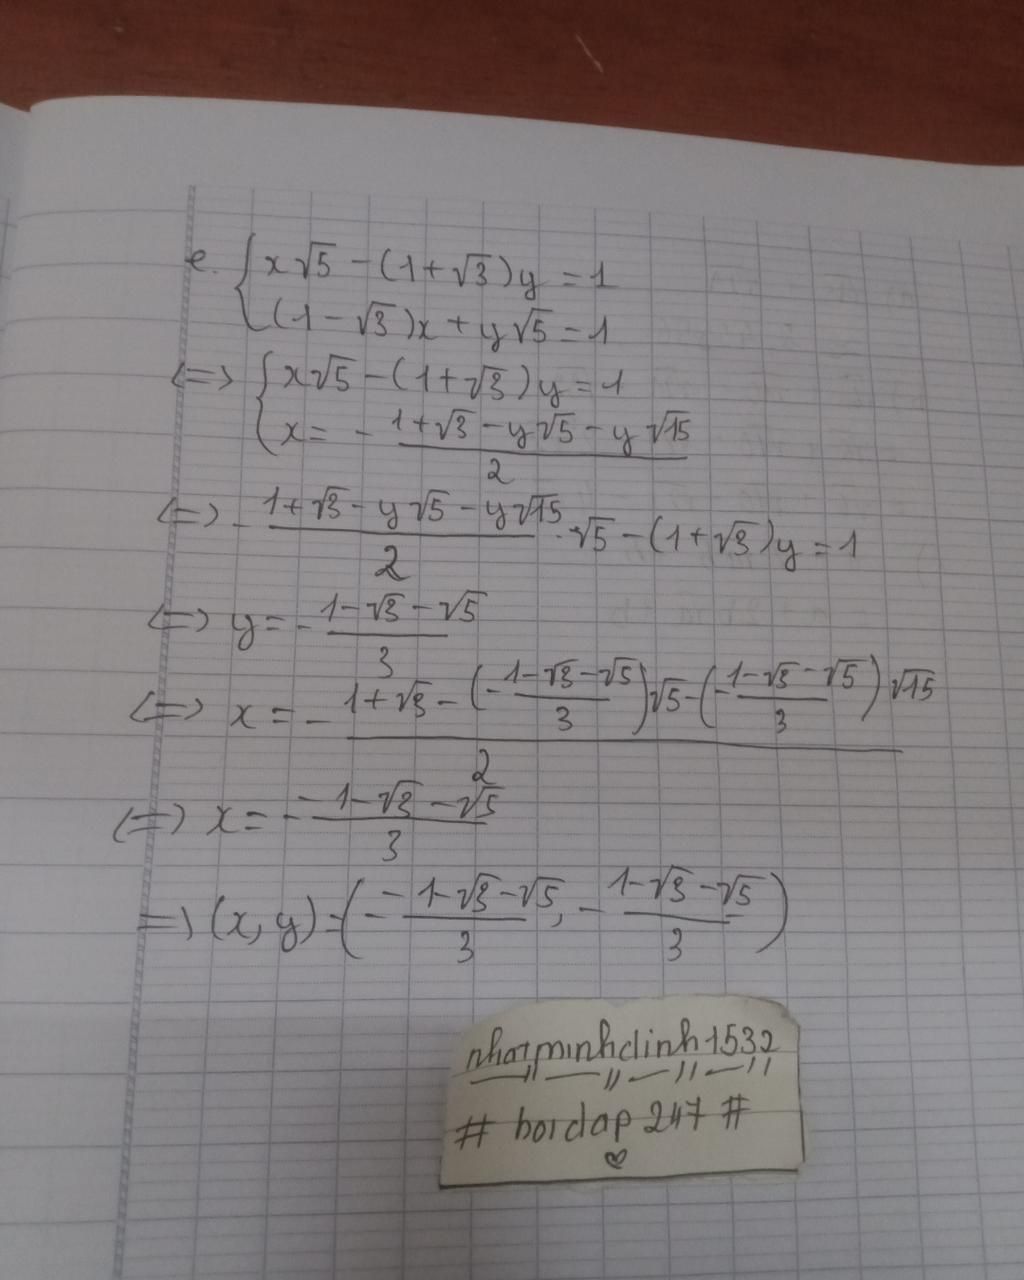 e. { x√5 - (1+√3)y = 1
(1-√3)x + y√5 = 1
<=> { x√5 - (1+√3)y = 1
x = - (1+√3 - y√5 - y√15)/2
<=> - (1+√3 - y√5 - y√15)/2 · √5 - (1+√3)y = 1
<=> y = - (1-√3-√5)/3
<=> x = - (1+√3 - (- (1-√3-√5)/3)√5 - (- (1-√3-√5)/3)√15)/2
<=> x = - (-1-√3-√5)/3
=> (x, y) = (- (-1-√3-√5)/3, - (1-√3-√5)/3)
nhatminhdinh1532
# hoidap 247 #